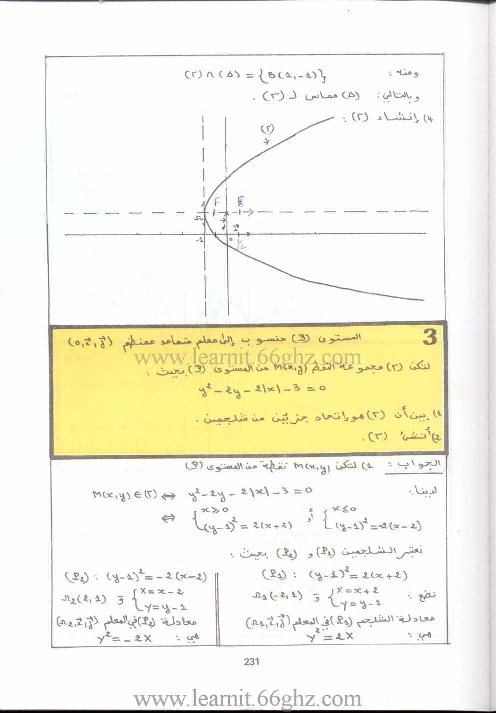 ومنه : (Γ) ∩ (Δ) = {B(1,-1)}
وبالتالي : (Δ) مماس لـ (Γ) .
4) إنشاء (Γ) :
(Γ)
F
Ω
-1
0
3
المستوى (P) منسوب إلى معلم متعامد ممنظم (0, i, j)
www.learnit.66ghz.com
لتكن (Γ) مجموعة النقط M(x,y) من المستوى (P) بحيث :
y² - 2y - 2|x| - 3 = 0
1) بين أن (Γ) هو إتحاد جزئين من شلجمين .
2) أنشئ (Γ) .
الجواب : 1) لتكن M(x,y) نقطة من المستوى (P)
لدينا : M(x,y) ∈ (Γ) ⇔ y² - 2y - 2|x| - 3 = 0
⇔ { x ≥ 0 , (y-1)² = 2(x+2) أو { x ≤ 0 , (y-1)² = -2(x-2)
نعتبر الشلجمين (P₁) و (P₂) بحيث :
(P₁) : (y-1)² = 2(x+2)
نضع : { X = x+2 , Y = y-1 و Ω₁(-2,1)
معادلة الشلجم (P₁) في المعلم (Ω₁, i, j)
هي : Y² = 2X
(P₂) : (y-1)² = -2(x-2)
{ X = x-2 , Y = y-1 و Ω₂(2,1)
معادلة (P₂) في المعلم (Ω₂, i, j)
هي : Y² = -2X
231
www.learnit.66ghz.com